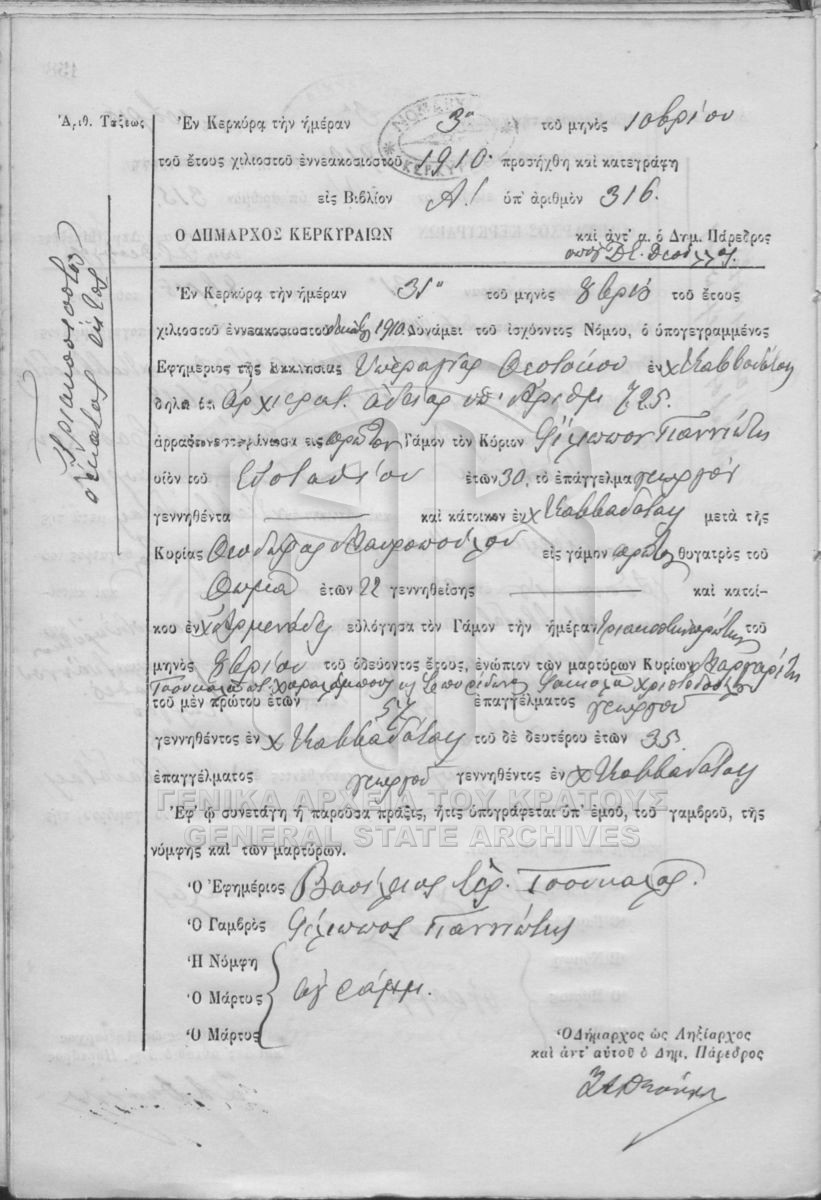 Ἀριθ. Τάξεως
Τριακοσιοστὸν
δέκατον ἕκτον
Ἐν Κερκύρᾳ τὴν ἡμέραν 3ῃ τοῦ μηνὸς 10βρίου
τοῦ ἔτους χιλιοστοῦ ἐννεακοσιοστοῦ 1910 προσήχθη καὶ κατεγράφη
εἰς Βιβλίον Α! ὑπ' ἀριθμὸν 316.
Ο ΔΗΜΑΡΧΟΣ ΚΕΡΚΥΡΑΙΩΝ καὶ ἀντ' α. ὁ Δημ. Πάρεδρος
ΝΟΜΑΡΧ
ΚΕΡΚΥ
Ἐν Κερκύρᾳ τὴν ἡμέραν 31ῃ τοῦ μηνὸς 8βρίου τοῦ ἔτους
χιλιοστοῦ ἐννεακοσιοστοῦ δεκάτου 1910 Δυνάμει τοῦ ἰσχύοντος Νόμου, ὁ ὑπογεγραμμένος
Ἐφημέριος τῆς Ἐκκλησίας Ὑπεραγίας Θεοτόκου ἐν χ Καββαδάδες
δηλῶ ὅτι Ἀρχιερατ. ἀδείας ὑπ' Ἀριθμ 725.
ἀρραβωνεστεφάνωσα εἰς πρῶτον Γάμον τὸν Κύριον Φίλιππον Γιαννιώτη
υἱὸν τοῦ Εὐσταθίου ἐτῶν 30, τὸ ἐπάγγελμα γεωργὸν
γεννηθέντα καὶ κάτοικον ἐν χ Καββαδάδες μετὰ τῆς
Κυρίας Θεοδώρας Μαυροπούλου εἰς γάμον πρῶτον θυγατρὸς τοῦ
Θωμᾶ ἐτῶν 22 γεννηθείσης καὶ κατοί-
κου ἐν χ Ἀρμενάδες εὐλόγησα τὸν Γάμον τὴν ἡμέραν τριακοστὴν πρώτην τοῦ
μηνὸς 8βρίου τοῦ ὁδεύοντος ἔτους, ἐνώπιον τῶν μαρτύρων Κυρίων Μαργαρίτη
Τσουκαλᾶ τοῦ Χαραλάμπους καὶ Σπυρίδωνα
τοῦ μὲν πρώτου ἐτῶν 57 ἐπαγγέλματος γεωργοῦ
γεννηθέντος ἐν χ Καββαδάδες τοῦ δὲ δευτέρου ἐτῶν 35
ἐπαγγέλματος γεωργοῦ γεννηθέντος ἐν χ Καββαδάδες
ΓΕΝΙΚΑ ΑΡΧΕΙΑ ΤΟΥ ΚΡΑΤΟΥΣ
Ἐφ' ᾧ συνετάγη ἡ παροῦσα πρᾶξις, ἥτις ὑπογράφεται ὑπ' ἐμοῦ, τοῦ γαμβροῦ, τῆς
GENERAL STATE ARCHIVES
νύμφης καὶ τῶν μαρτύρων.
Ὁ Ἐφημέριος Βασίλειος Ἱερ. Τσουκαλᾶς.
Ὁ Γαμβρὸς Φίλιππος Γιαννιώτης
Ἡ Νύμφη
Ὁ Μάρτυς ἀγράμμ.
Ὁ Μάρτυς
Ὁ Δήμαρχος ὡς Ληξίαρχος
καὶ ἀντ' αὐτοῦ ὁ Δημ. Πάρεδρος